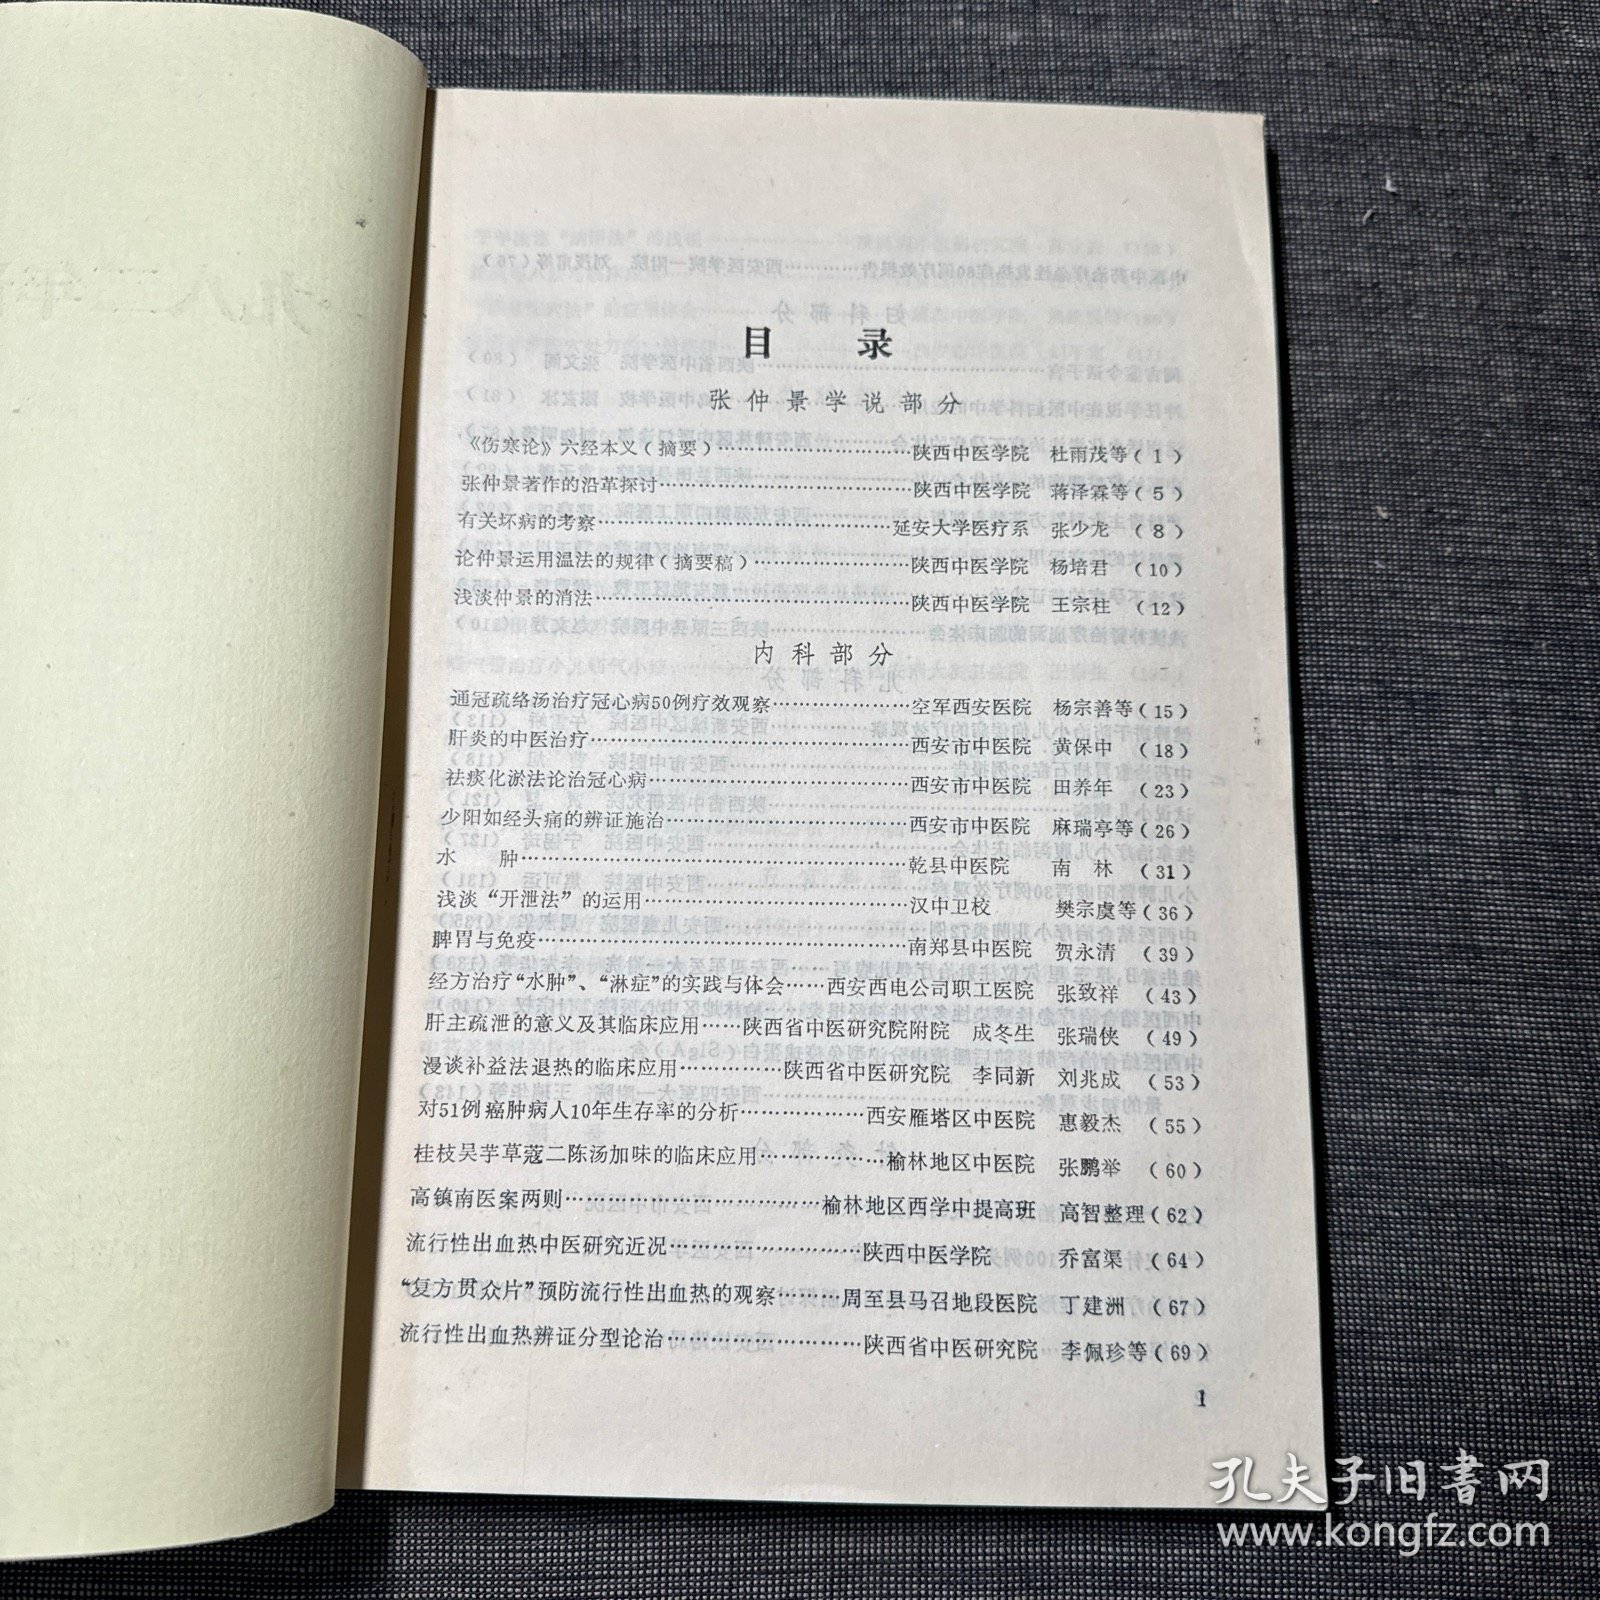 目 录
张仲景学说部分
《伤寒论》六经本文(摘要)……………………陕西中医学院 杜雨茂等(1)
张仲景著作的沿革探讨……………………………陕西中医学院 蒋泽霖等(5)
有关坏病的考察……………………………………延安大学医疗系 张少龙 (8)
论仲景运用温法的规律(摘要稿)………………陕西中医学院 杨培君 (10)
浅淡仲景的消法……………………………………陕西中医学院 王宗柱 (12)
内科部分
通冠疏络汤治疗冠心病50例疗效观察…………………空军西安医院 杨宗善等(15)
肝炎的中医治疗……………………………………西安市中医院 黄保中 (18)
祛痰化淤法论治冠心病……………………………西安市中医院 田养年 (23)
少阳如经头痛的辨证施治…………………………西安市中医院 麻瑞亭等(26)
水 肿………………………………………………乾县中医院 南 林 (31)
浅淡“开泄法”的运用……………………………汉中卫校 樊宗虞等(36)
脾胃与免疫…………………………………………南郑县中医院 贺永清 (39)
经方治疗“水肿”、“淋症”的实践与体会……西安西电公司职工医院 张致祥 (43)
肝主疏泄的意义及其临床应用……陕西省中医研究院附院 成冬生 张瑞侠 (49)
漫谈补益法退热的临床应用……………陕西省中医研究院 李同新 刘兆成 (53)
对51例癌肿病人10年生存率的分析………………西安雁塔区中医院 惠毅杰 (55)
桂枝吴芋草蔻二陈汤加味的临床应用………………榆林地区中医院 张鹏举 (60)
高镇南医案两则……………………………榆林地区西学中提高班 高智整理(62)
流行性出血热中医研究近况………………………陕西中医学院 乔富渠 (64)
“复方贯众片”预防流行性出血热的观察………周至县马召地段医院 丁建洲 (67)
流行性出血热辨证分型论治………………………陕西省中医研究院 李佩珍等(69)
1
孔夫子旧书网
www.kongfz.com